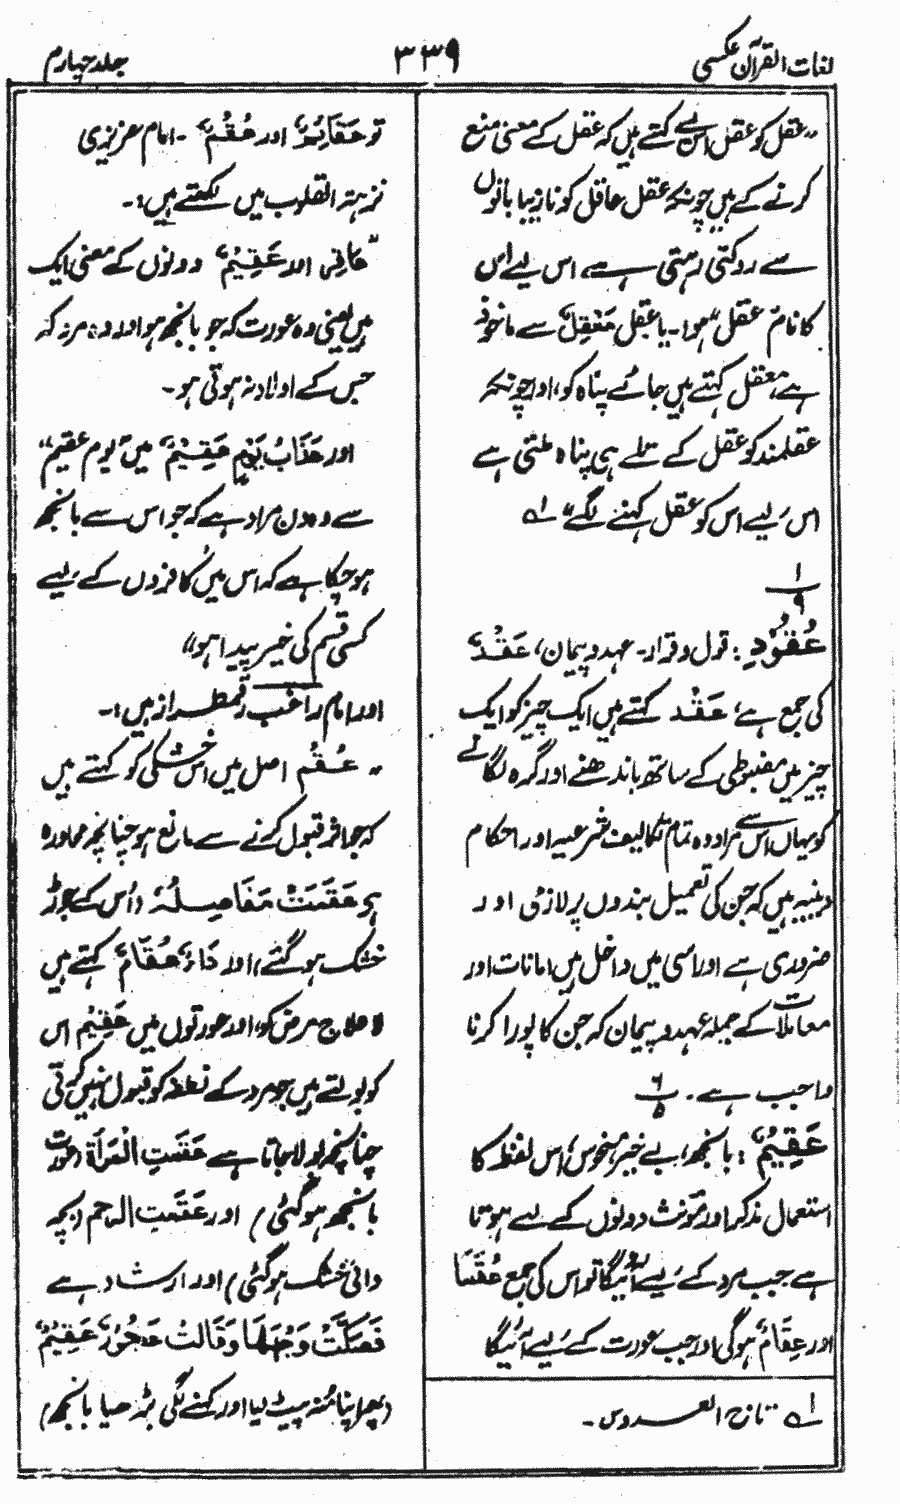 لغات القرآن عکسی
۳۳۹
جلد چہارم
”عقل کو عقل اس لیے کہتے ہیں کہ عقل کے معنی منع
کرنے کے ہیں چونکہ عقل عاقل کو نازیبا باتوں
سے روکتی رہتی ہے اس لیے اس
کا نام عقل ہوا۔ یا عقل مَعْقِلٌ سے ماخوذ
ہے، معقل کہتے ہیں جائے پناہ کو، اور چونکہ
عقلمند کو عقل کے تلے ہی پناہ ملتی ہے
اس لیے اس کو عقل کہنے لگے“ لہ
۱
۹
عُقُوْدِ: قول و قرار۔ عہد و پیمان، عَقْدٌ
کی جمع ہے، عَقْد کہتے ہیں ایک چیز کو ایک
چیز میں مضبوطی کے ساتھ باندھنے اور گرہ لگانے
کو یہاں اس سے مراد وہ تمام تکالیف شرعیہ اور احکام
دینیہ ہیں کہ جن کی تعمیل بندوں پر لازمی اور
ضروری ہے اور اسی میں داخل ہیں امانات اور
معاملات کے جملہ عہد و پیمان کہ جن کا پورا کرنا
واجب ہے۔ ۶
۵
عَقِیْمٌ: بانجھ، بے خیر، منحوس، اس لفظ کا
استعمال مذکر اور مؤنث دونوں کے لیے ہوتا
ہے جب مرد کے لیے آئیگا تو اس کی جمع عُقَمَا
اور عِقَامٌ ہوگی اور جب عورت کے لیے آئیگا
لہ تاج العروس۔
تو عَقَائِمُ اور عُقُمٌ۔ امام عزیزی
نزہتہ القلوب میں لکھتے ہیں:۔
”عاقر اور عَقِیْمٌ دونوں کے معنی ایک
ہیں یعنی وہ عورت کہ جو بانجھ ہو اور وہ مرد کہ
جس کے اولاد نہ ہوتی ہو۔
اور عَذَابُ یَوْمٍ عَقِیْمٍ میں ”یوم عقیم“
سے وہ دن مراد ہے کہ جو اس سے بانجھ
ہو چکا ہے کہ اس میں کافروں کے لیے
کسی قسم کی خیر پیدا ہو“
اور امام راغب رقمطراز ہیں:۔
”عُقْم اصل میں اس خشکی کو کہتے ہیں
کہ جو اثر قبول کرنے سے مانع ہو چنانچہ محاورہ
ہے عَقَمَتْ مَفَاصِلُہٗ (اُس کے جوڑ
خشک ہو گئے)، اور دَاءٌ عُقَامٌ کہتے ہیں
لاعلاج مرض کو، اور عورتوں میں عَقِیْم اس
کو بولتے ہیں جو مرد کے نطفہ کو قبول نہیں کرتی
چنانچہ بولا جاتا ہے عَقَمَتِ الْمَرْأَۃُ (عورت
بانجھ ہو گئی) اور عَقَمَتِ الرحم (بچہ
دانی خشک ہو گئی) اور ارشاد ہے
فَصَکَّتْ وَجْہَہَا وَقَالَتْ عَجُوْزٌ عَقِیْمٌ
(پھر اپنا منہ پیٹ لیا اور کہنے لگی بڑھیا بانجھ)